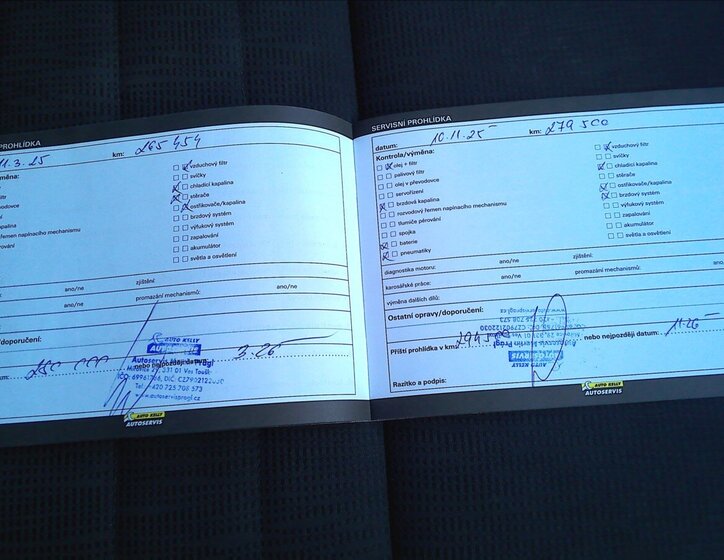 PROHLÍDKA
11.3.25 km: 265 454
vzduchový filtr
svíčky
chladící kapalina
stěrače
ostřikovače/kapalina
brzdový systém
řemen napínacího mechanismu
výfukový systém
pérování
zapalování
akumulátor
světla a osvětlení
ano/ne zjištění:
ano/ne promazání mechanismů: ano/ne
doporučení:
nebo nejpozději datum: 3.26
AUTO KELLY
331 01
Tel. +420 725 708 573
www.autoservisprogl.cz
AUTO KELLY
AUTOSERVIS
SERVISNÍ PROHLÍDKA
datum: 10.11.25 km: 279 500
Kontrola/výměna:
olej + filtr
palivový filtr
olej v převodovce
servořízení
brzdová kapalina
rozvodový řemen napínacího mechanismu
tlumiče pérování
spojka
baterie
pneumatiky
vzduchový filtr
svíčky
chladící kapalina
stěrače
ostřikovače/kapalina
brzdový systém
výfukový systém
zapalování
akumulátor
světla a osvětlení
diagnostika motoru: ano/ne zjištění:
karosářské práce: ano/ne promazání mechanismů: ano/ne
výměna dalších dílů:
Ostatní opravy/doporučení:
Příští prohlídka v km: nebo nejpozději datum: 11.26
AUTOSERVIS
AUTO KELLY
Razítko a podpis:
AUTO KELLY
AUTOSERVIS